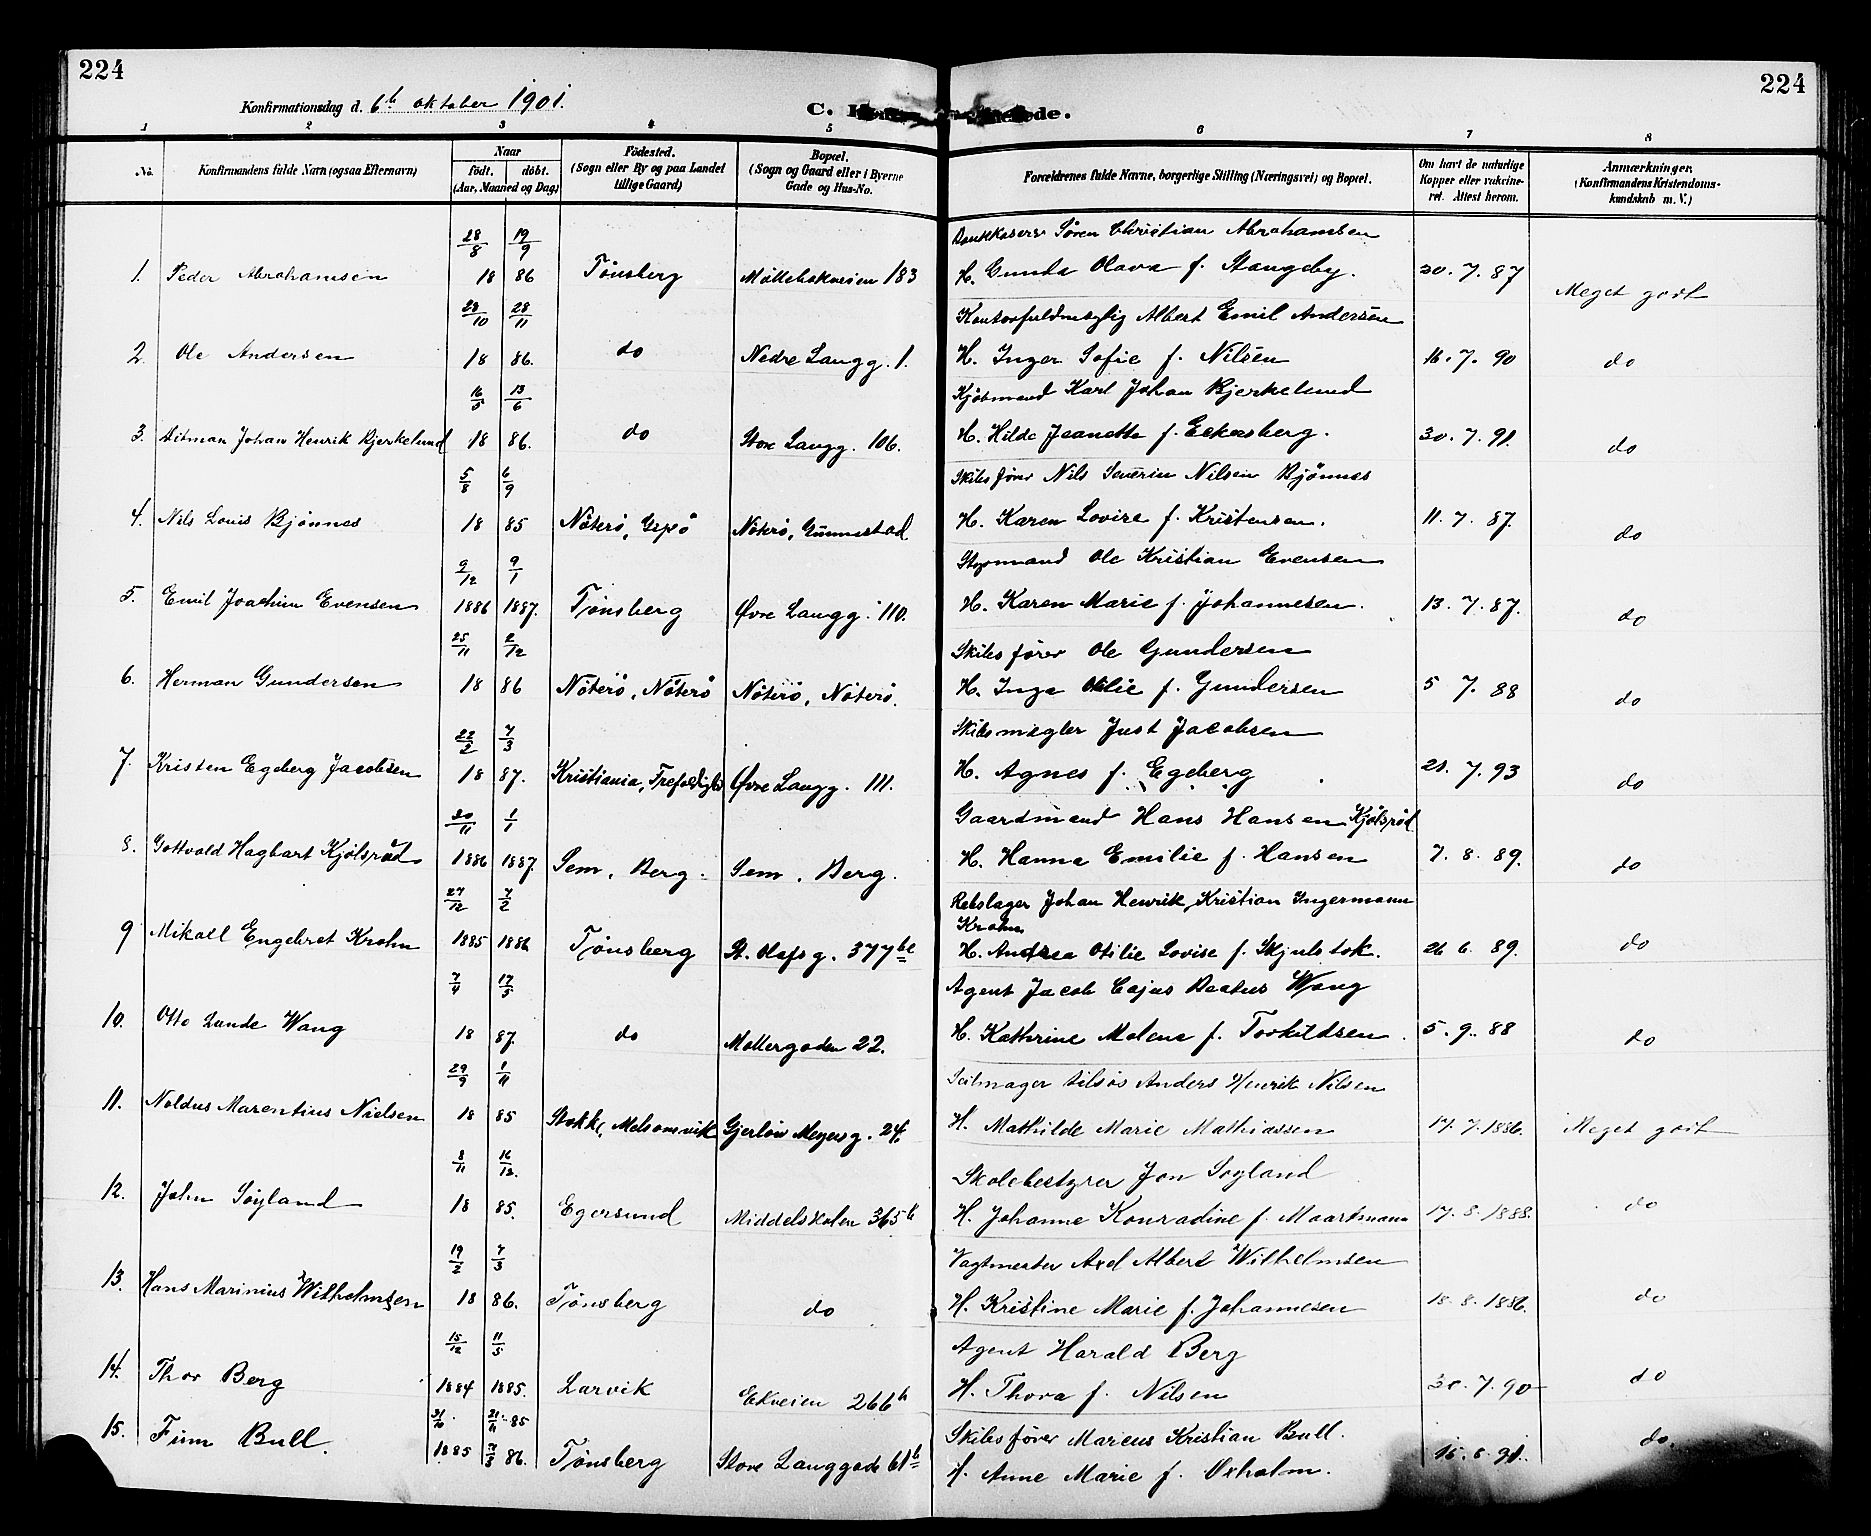 224
224
Konfirmationsdag d. 6te oktober 1901.
C.
1 2 3 4 5 6 7 8
No. Konfirmandens fulde Navn (ogsaa Efternavn) Naar født. døbt. (Aar, Maaned og Dag) Fødested. (Sogn eller By og paa Landet tillige Gaard) Bopæl. (Sogn og Gaard eller i Byerne Gade og Hus-No. Forældrenes fulde Navne, borgerlige Stilling (Næringsvei) og Bopæl. Om havt de naturlige Kopper eller vakcineret. Attest herom. Anmærkninger. (Konfirmandens Kristendomskundskab m. V.)
28/8 19/9 Søren Christian Abrahamsen
1. Peder Abrahamsen 18 86 Tønsberg 183 H. Gunda Olava f. Stangeby. 30. 7. 87 Meget godt
28/10 28/11 Kontorfuldmægtig Albert Emil Andersen
2. Ole Andersen 18 86. do Nedre Langg. 1. H. Inger Sofie f. Nilsen 16. 7. 90 do
16/5 13/6 Kjøbmand Karl Johan Bjerkelund
3. Ditman Johan Henrik Bjerkelund 18 86. do Store Langg. 106. H. Hilda Jeanette f. Eckersberg. 30. 7. 91. do
5/8 6/9 Skibsfører Nils Severin Nilsen Bjønnes
4. Nils Louis Bjønnes 18 85 Nøterø, Gipø Nøterø, Gunnestad H. Karen Lovise f. Kristensen. 11. 7. 87. do
9/12 9/1 Styrmand Ole Kristian Evensen
5. Emil Joachim Evensen 1886 1887. Tønsberg Øvre Langg. 110. H. Karen Marie f. Johannesen. 13. 7. 87. do
25/11 2/12 Skibsfører Ole Gundersen
6. Herman Gundersen 18 86 Nøterø, Nøterø Nøterø, Nøterø. H. Inga Otilie f. Gundersen 5 7. 88 do
22/2 7/3 Skibsmægler Just Jacobsen
7. Kristen Egeberg Jacobsen 18 87. Kristiania, Trefoldigh Øvre Langg. 111. H. Agnes f. Egeberg 21. 7. 93 do
20/11 1/1 Gaardmand Hans Hansen Kjølsrød
8. Gottvald Hagbart Kjølsrød 1886 1887. Sem, Berg. Sem, Berg. H. Hanna Emilie f. Hansen 7. 8. 89. do
27/12 7/2 Rebslager Johan Henrik Kristian Ingermann
Krohn
9 Mikael Engebret Krohn 1885 1886 Tønsberg St. Olafs g. 377be H. Andrea Otilie Lovise f. Skjulstok. 26 6. 89. do
7/4 17/5 Agent Jacob Cajus Beatus Wang
10. Otto Lande Wang 18 87. do Møllergaden 22. H. Kathrine Malene f. Torkildsen. 5. 9. 88 do
29/9 1/11 Seilmager Anders Henrik Nilsen
11. Noldus Marentius Nielsen 18 85 Stokke, Melsomvik Gjerløw Meyers g. 24. H. Mathilde Marie Mathiassen 17. 7. 1886. Meget godt
8/11 16/12. Skolebestyrer Jon Søyland
12. John Søyland 18 85. Egersund Middelskolen 365b H. Johanne Konradine f. Maartmann 17. 8. 1888. do
19/2 7/3 Vagtmester Axel Albert Wilhelmsen
13. Hans Marinius Wilhelmsen 18 86. Tønsberg do H. Kristine Marie f. Johannesen 18. 8. 1886. do
15/12 11/5 Agent Harald Berg
14. Thor Berg 1884 1885. Larvik Ekveien 266b H. Thora f. Nilsen 30. 7. 90 do
31/10 21/11 85 Skibsfører Marcus Kristian Bull.
15. Finn Bull. 1885 7/3 86. Tønsberg Store Langgade 61b H. Anne Marie f. Oxholm. 15. 6. 91. do.